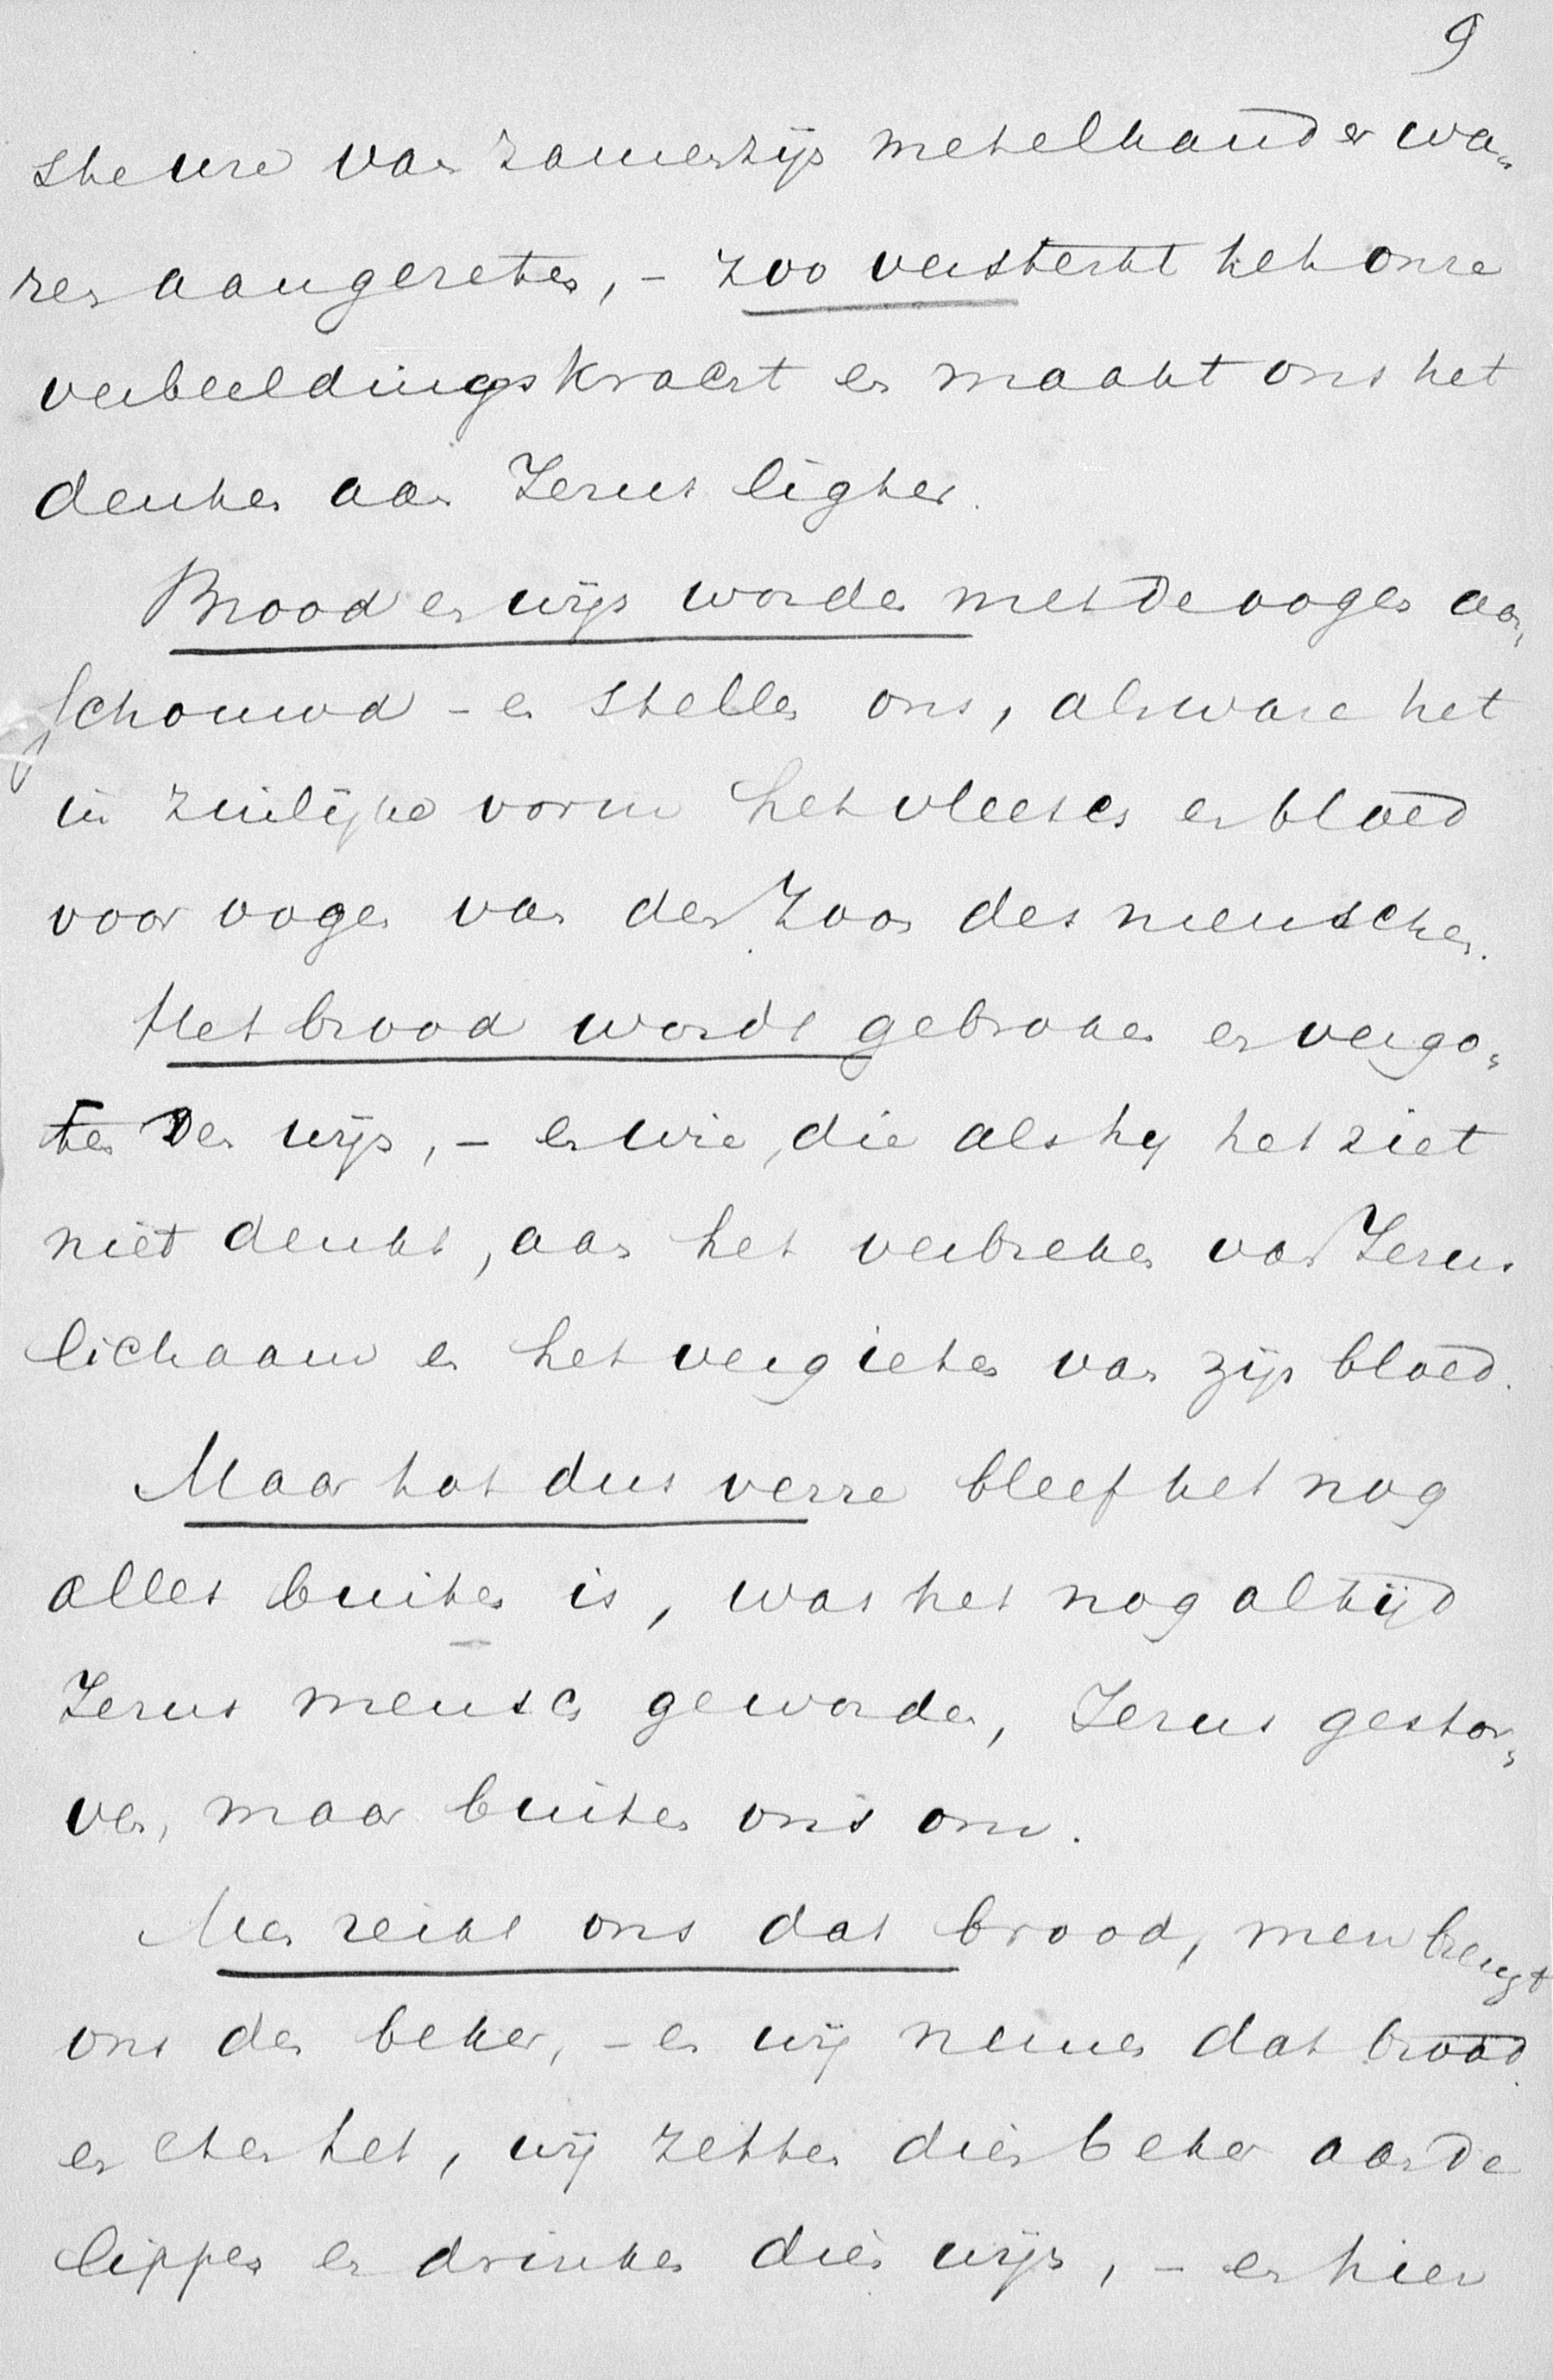 9
steune van zamenzijn met elkander wa„
ren aangezeten, – zoo versterkt het onze
verbeeldingskracht en maakt ons het
denken aan Jezus ligter.
Brood en wijn worden met de oogen aan„
schouwd – en stellen ons, als ware het
in zinlijke vorm het vleesch en bloed
voor oogen van den Zoon des menschen.
Het brood wordt gebroken en vergo„
ten den wijn, – en wie, die als hij het ziet
niet denkt, aan het verbreken van Jezus
lichaam en het vergieten van zijn bloed.
Maar tot dus verre bleef het nog
alles buiten is, was het nog altijd
Jezus mensch geworden, Jezus gestor„
ven, maar buiten ons om.
Men reikt ons dat brood, men brengt
ons den beker, – en wij nemen dat brood
en eten het, wij zetten dien beker aan de
lippen en drinken dien wijn, – en hier